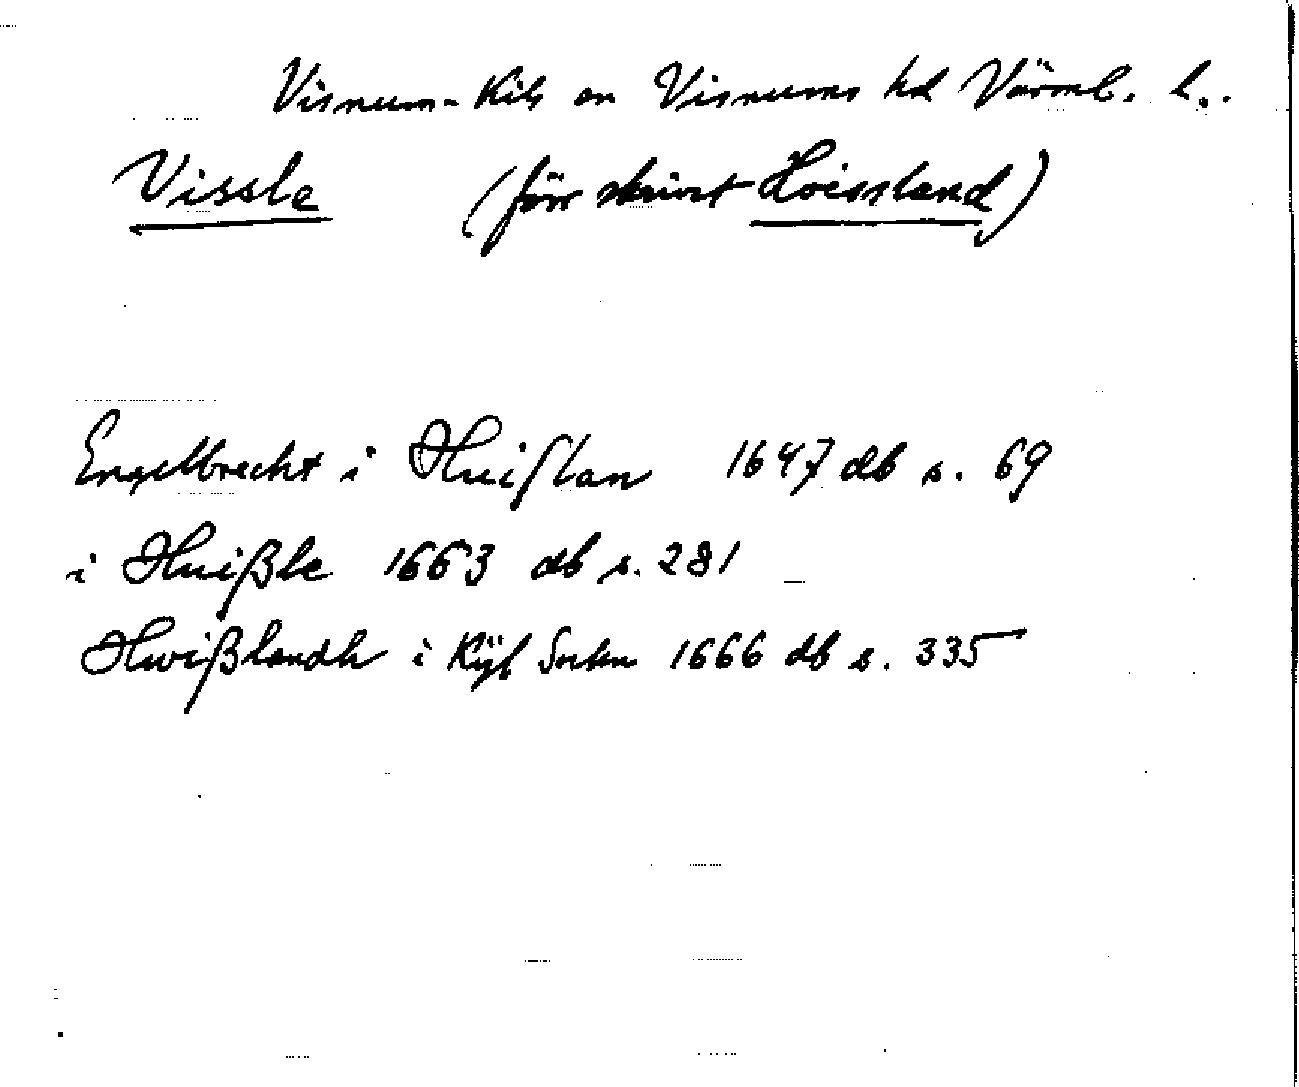 Visnum-Kils sn Visnums hd Värml. l.
Vissle (förr skrivet Hvissland)
Engelbrecht i Huißlan 1647 db s. 69
i Huißle 1663 db s. 281
Hwißlandh i Kÿl Sockn 1666 db s. 335